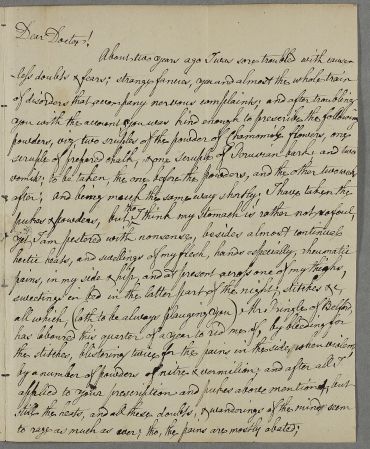 Dear Doctor!
About two years ago I was sore troubled with cause-
less doubts & fears; strange fancies, yea and almost the whole train
of disorders that accompany nervous complaints; and after troubling
you with the account you was kind enough to prescribe the following
powders, viz, two scruples of the powder of Chamomile flowers, one
scruple of prepared chalk, & one scruple of Peruvian bark and two
vomits; to be taken, the one before the powders, and the other two weeks
after; and being much the same way shortly, I have taken the
pukes & powders, but I think my stomach is rather not so foul,
yet I am pestered with nonsense, besides almost continual
hectic heats, and swellings of my flesh, hands especially, rheumatic
pains, in my side & hip, and at present across one of my thighs,
sweetings in bed in the latter part of the night; stitches &c,
all which, (loth to be always plaugeing you) Mr Pringle of Belford,
has laboured this quarter of a year to rid me of, by bleeding for
the stitches, blistering twice for the pains in the side,
by a number of powders of nitre & vermilion; and after all I
applied to your prescription and pukes above mentioned, but
still the heats, and all these doubts, & wanderings of the mind seem
to rage as much as ever; tho, the pains are mostly abated;